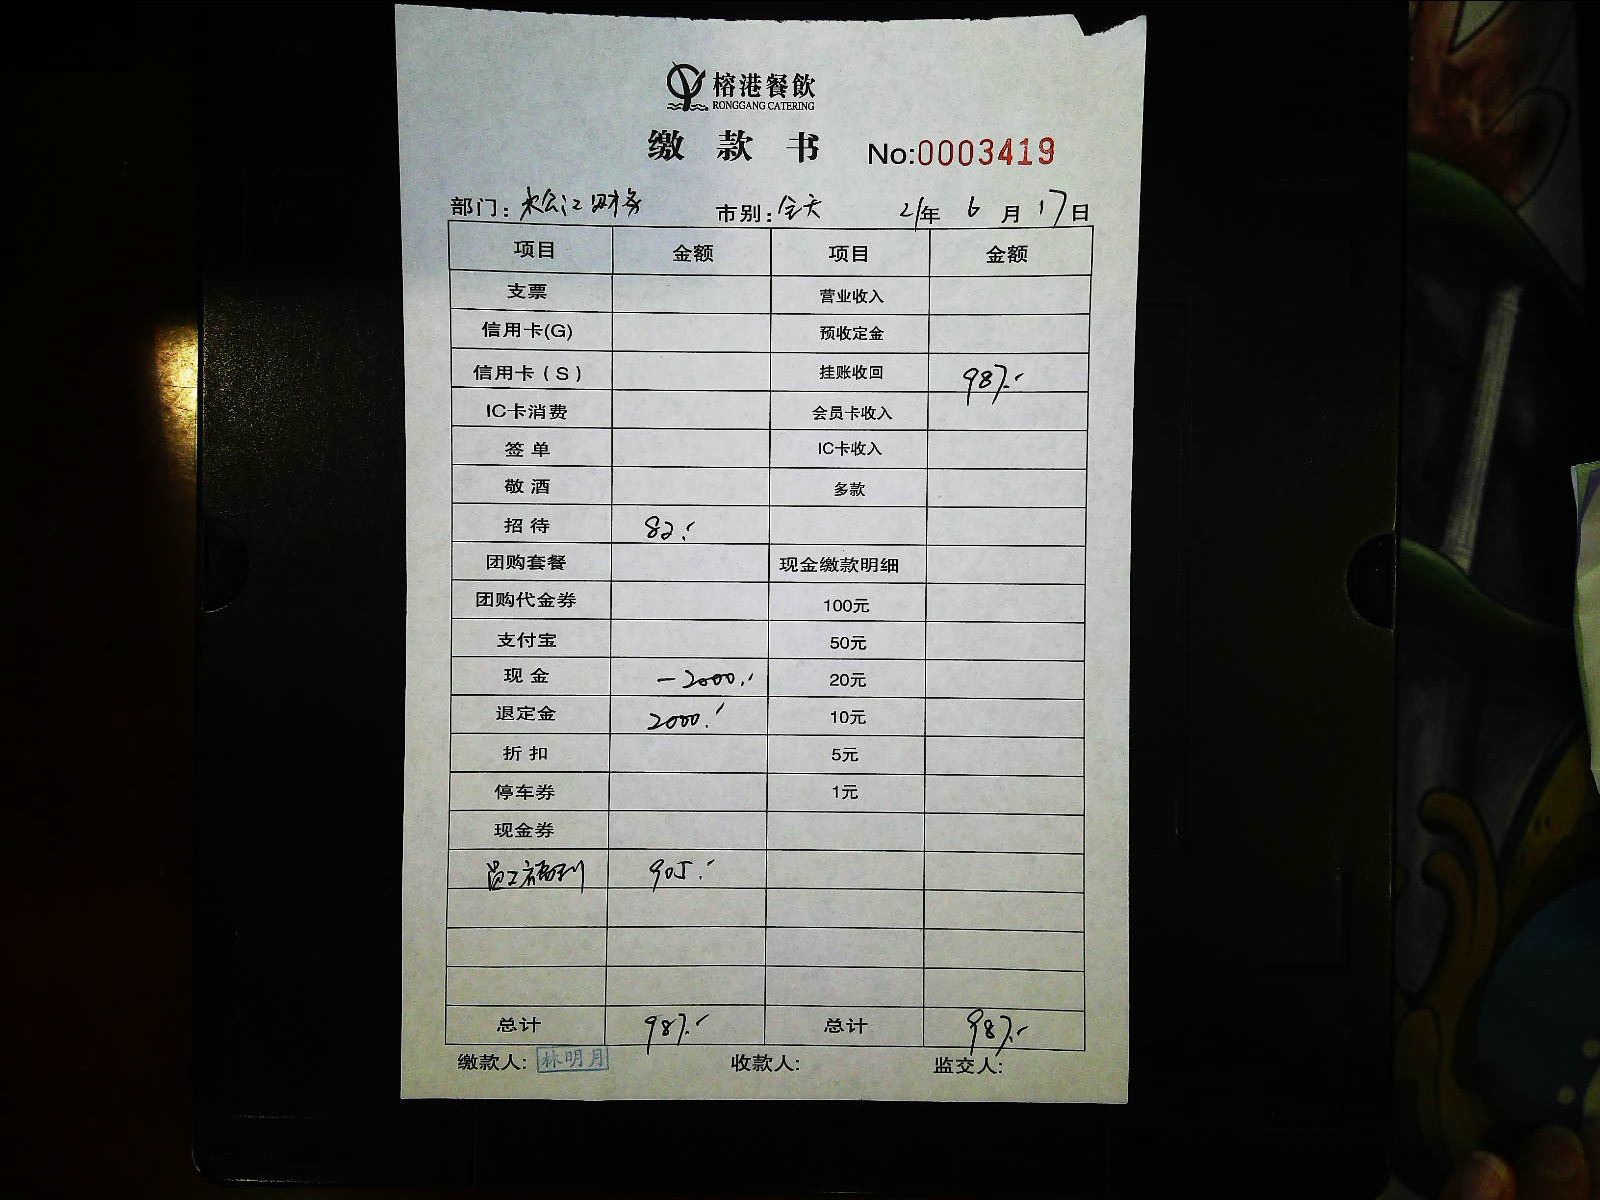 榕港餐飲
RONGGANG CATERING
缴款书 No:0003419
部门: 松江财务 市别: 全天 21年 6月 17日
项目 金额 项目 金额
支票 营业收入
信用卡(G) 预收定金
信用卡(S) 挂账收回 987.-
IC卡消费 会员卡收入
签单 IC卡收入
敬酒 多款
招待 82.-
团购套餐 现金缴款明细
团购代金券 100元
支付宝 50元
现金 -2000.- 20元
退定金 2000.- 10元
折扣 5元
停车券 1元
现金券
员工福利 905.-
总计 987.- 总计 987.-
缴款人: 林明月 收款人: 监交人: